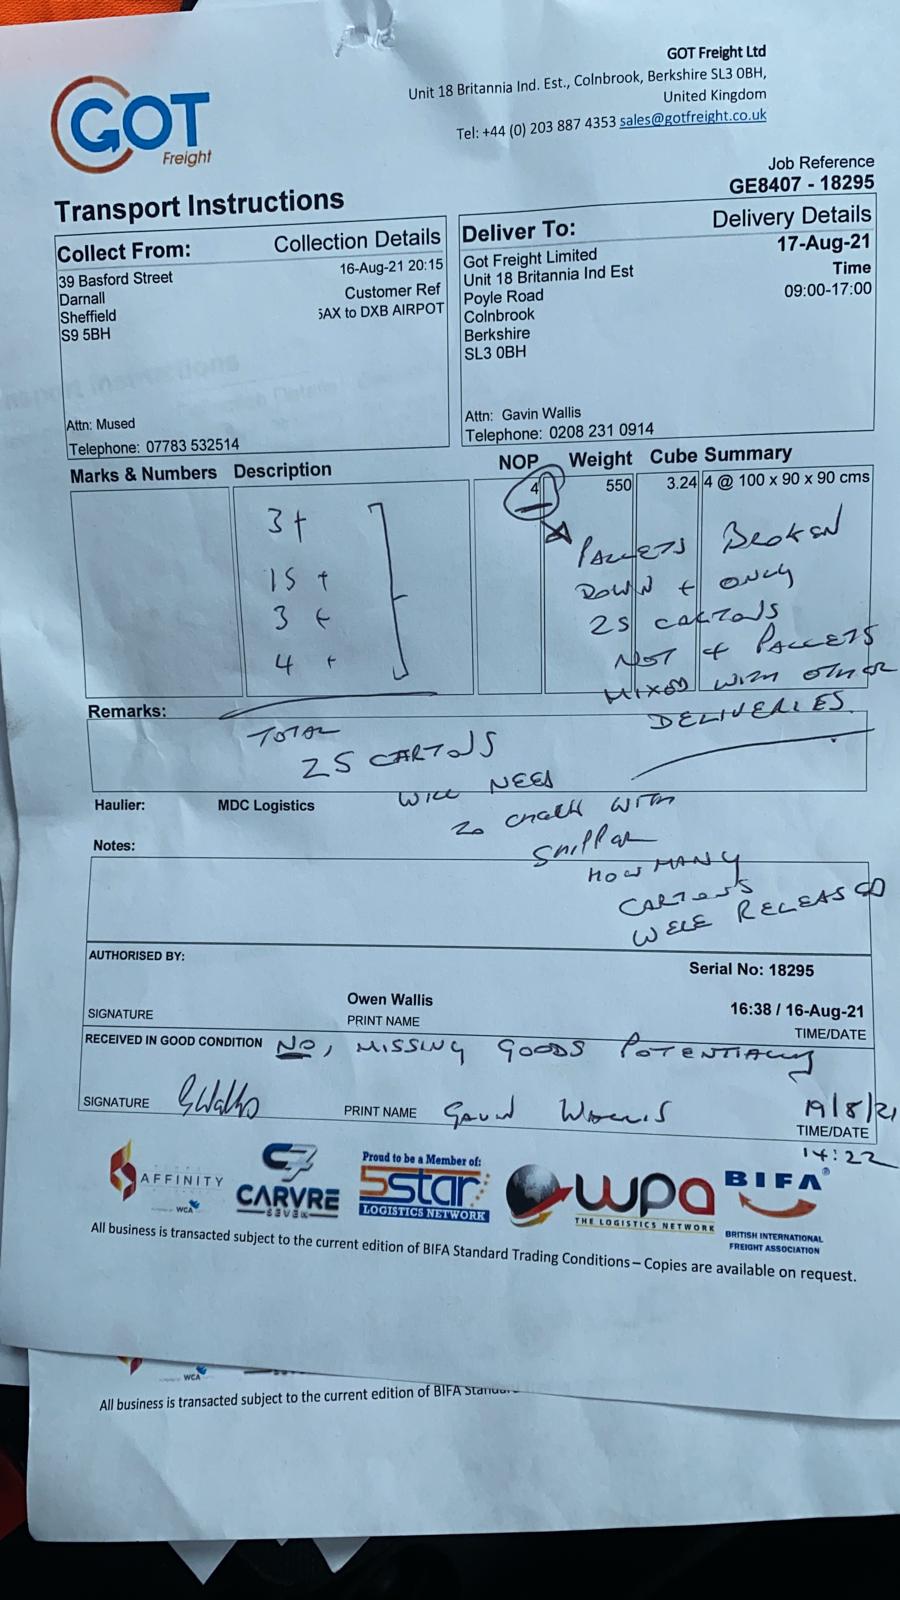 GOT
Freight
GOT Freight Ltd
Unit 18 Britannia Ind. Est., Colnbrook, Berkshire SL3 0BH,
United Kingdom
Tel: +44 (0) 203 887 4353 sales@gotfreight.co.uk
Job Reference
GE8407 - 18295
Transport Instructions
Collect From: Collection Details
39 Basford Street 16-Aug-21 20:15
Darnall Customer Ref
Sheffield SAX to DXB AIRPOT
S9 5BH
Attn: Mused
Telephone: 07783 532514
Deliver To: Delivery Details
Got Freight Limited 17-Aug-21
Unit 18 Britannia Ind Est Time
Poyle Road 09:00-17:00
Colnbrook
Berkshire
SL3 0BH
Attn: Gavin Wallis
Telephone: 0208 231 0914
Marks & Numbers Description NOP Weight Cube Summary
4 550 3.24 4 @ 100 x 90 x 90 cms
3 +
15 +
3 +
4 +
PALLETS BROKEN
DOWN + ONLY
25 CARTONS
NOT 4 PALLETS
MIXED WITH OTHER
DELIVERIES
Remarks:
TOTAL
25 CARTONS
WILL NEED
TO CHECK WITH
SHIPPER
HOW MANY
CARTONS
WERE RELEASED
Haulier: MDC Logistics
Notes:
AUTHORISED BY:
Serial No: 18295
Owen Wallis 16:38 / 16-Aug-21
SIGNATURE PRINT NAME TIME/DATE
RECEIVED IN GOOD CONDITION NO, MISSING GOODS POTENTIALLY
SIGNATURE GWallis PRINT NAME Gavin Wallis 19/8/21
TIME/DATE
14:22
AFFINITY
WCA
CARVRE
SEVEN
Proud to be a Member of:
5star
LOGISTICS NETWORK
wpa
THE LOGISTICS NETWORK
BIFA®
BRITISH INTERNATIONAL
FREIGHT ASSOCIATION
All business is transacted subject to the current edition of BIFA Standard Trading Conditions – Copies are available on request.
WCA
All business is transacted subject to the current edition of BIFA